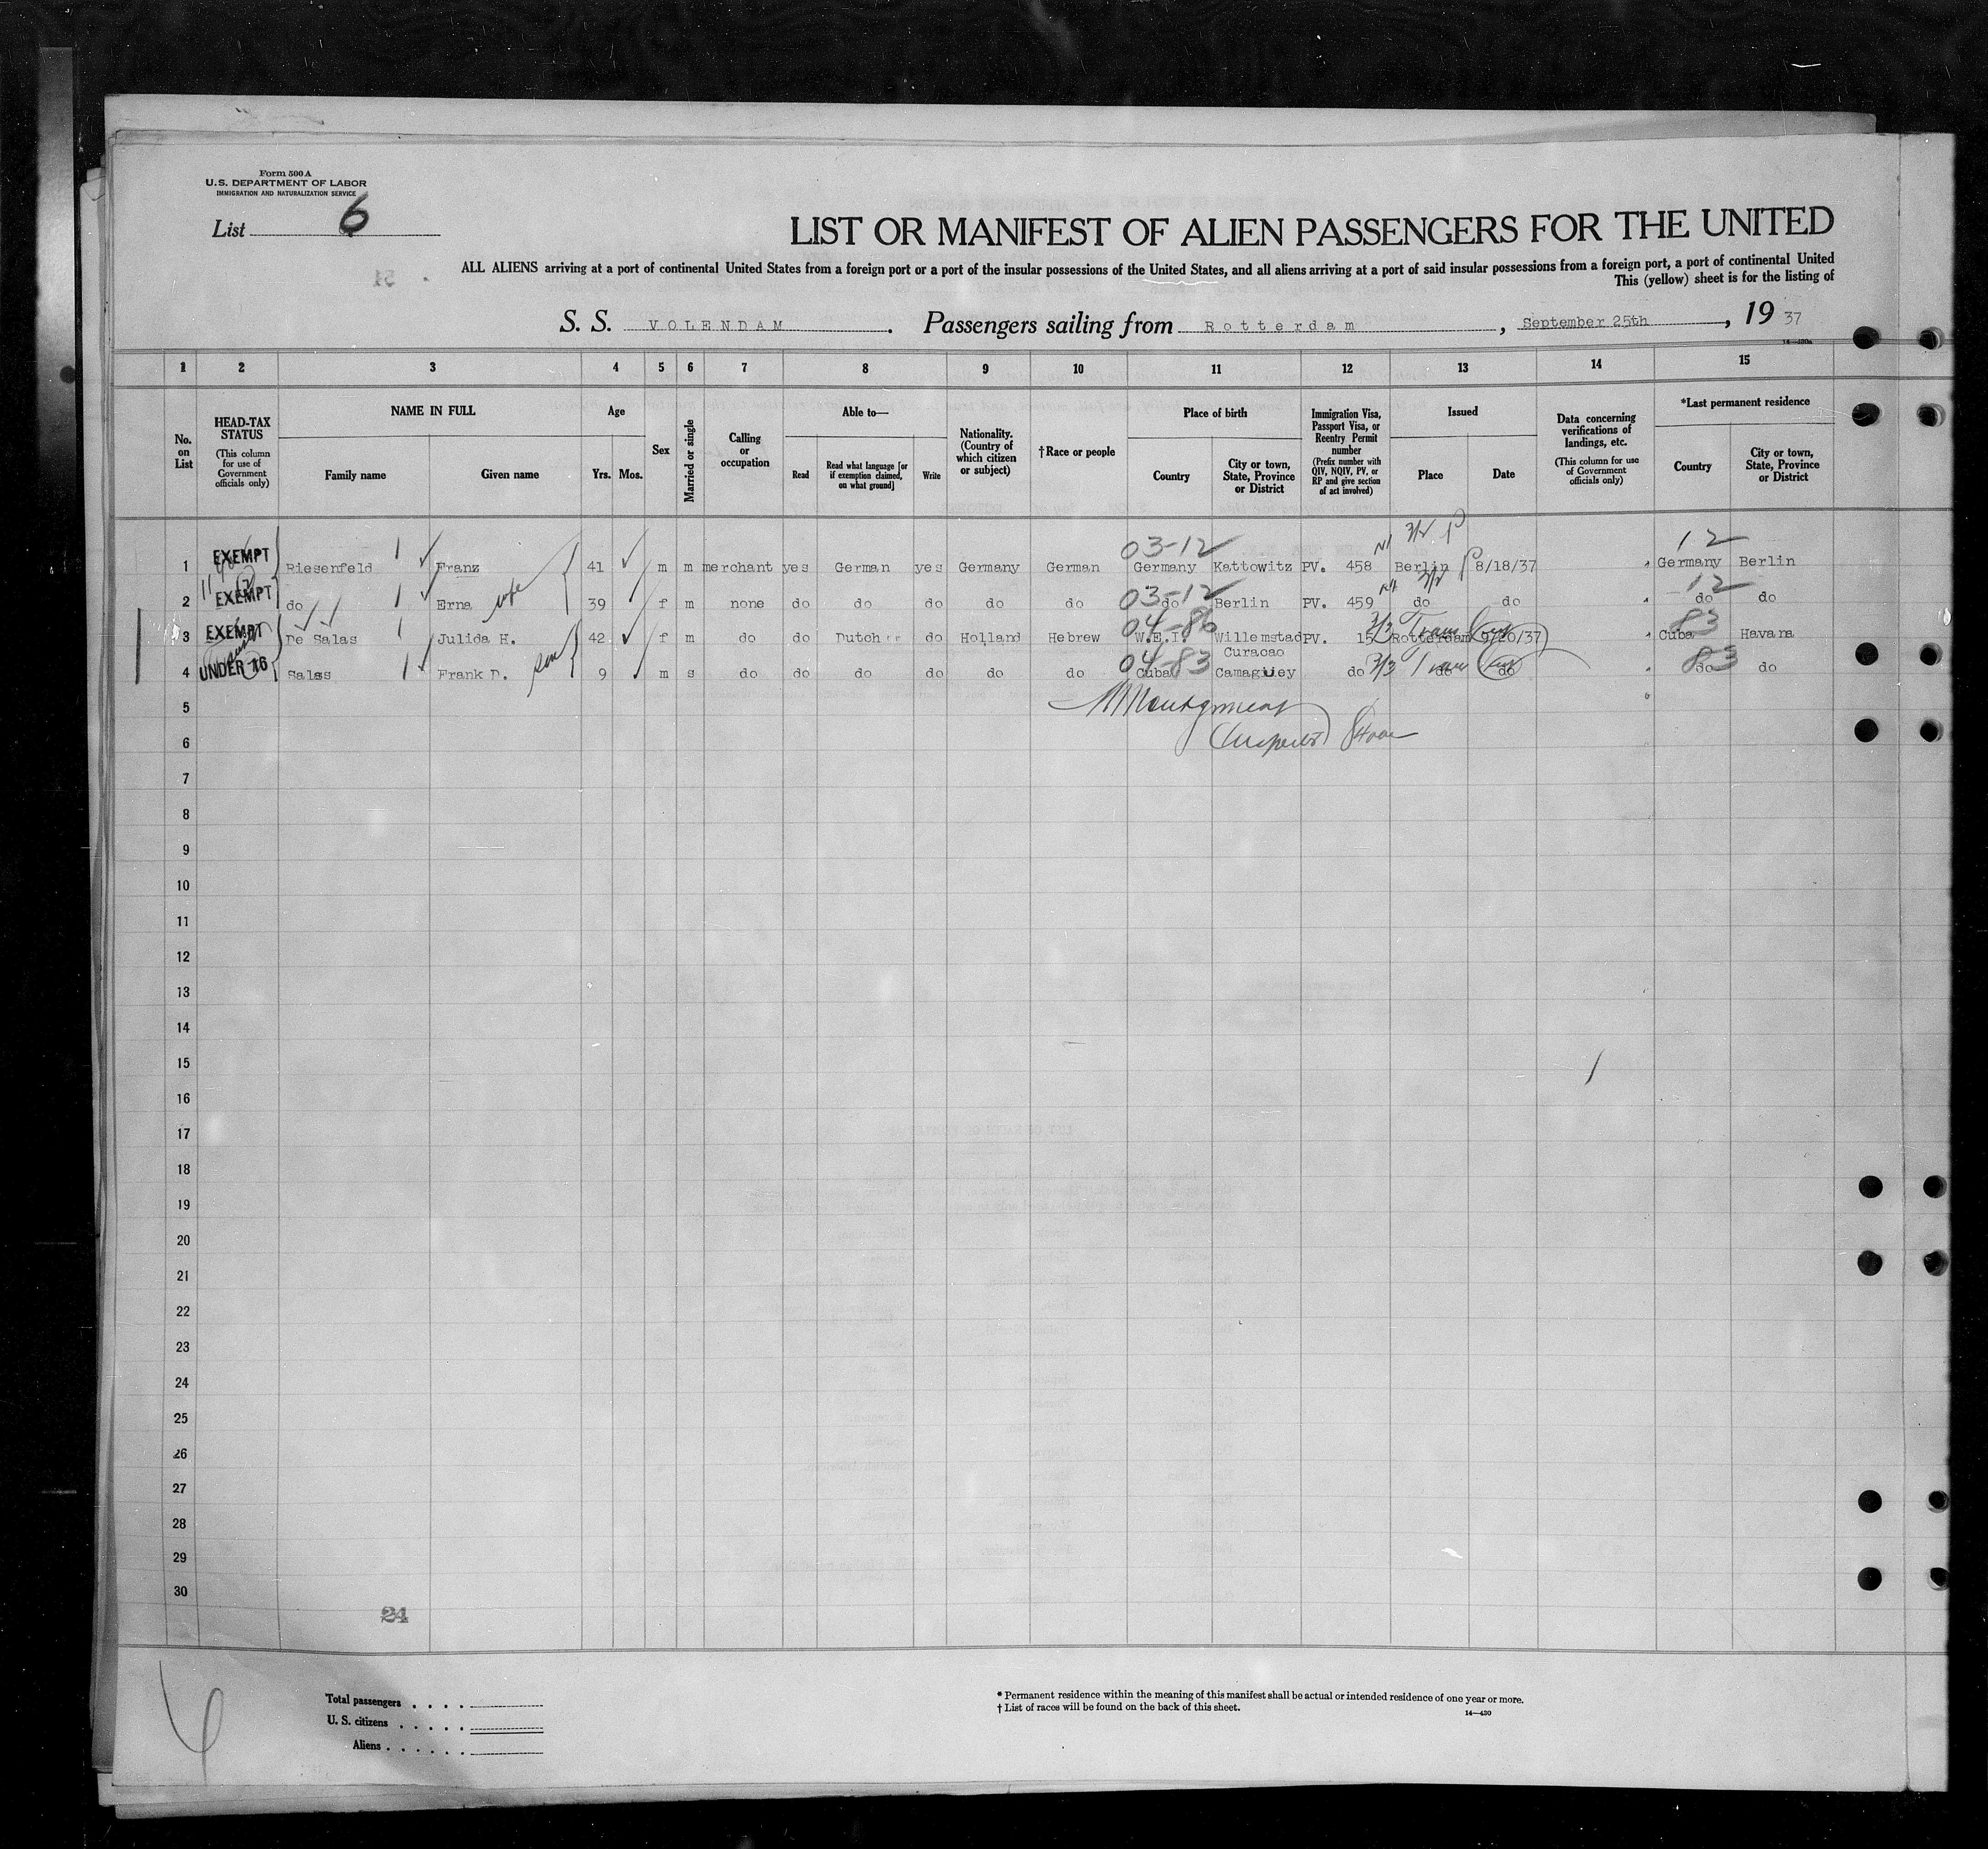 Form 500 A
U.S. DEPARTMENT OF LABOR
IMMIGRATION AND NATURALIZATION SERVICE
List 6
LIST OR MANIFEST OF ALIEN PASSENGERS FOR THE UNITED
ALL ALIENS arriving at a port of continental United States from a foreign port or a port of the insular possessions of the United States, and all aliens arriving at a port of said insular possessions from a foreign port, a port of continental United
This (yellow) sheet is for the listing of
S. S. VOLENDAM . Passengers sailing from Rotterdam , September 25th , 19 37
14—430a
1 2 3 4 5 6 7 8 9 10 11 12 13 14 15
No. on List
HEAD-TAX STATUS (This column for use of Government officials only)
NAME IN FULL
Family name Given name
Age
Yrs. Mos.
Sex
Married or single
Calling or occupation
Able to—
Read
Read what language [or if exemption claimed, on what ground]
Write
Nationality. (Country of which citizen or subject)
†Race or people
Place of birth
Country
City or town, State, Province or District
Immigration Visa, Passport Visa, or Reentry Permit number (Prefix number with QIV, NQIV, PV, or RP and give section of act involved)
Issued
Place Date
Data concerning verifications of landings, etc. (This column for use of Government officials only)
*Last permanent residence
Country
City or town, State, Province or District
03-12 3/2 12
1 EXEMPT Riesenfeld Franz 41 m m merchant yes German yes Germany German Germany Kattowitz PV. 458 Berlin 8/18/37 Germany Berlin
2 EXEMPT do Erna wife 39 f m none do do do do do 03-12 do Berlin PV. 459 do do 12 do do
3 EXEMPT De Salas Julida H. 42 f m do do Dutch do Holland Hebrew 04-86 W.E.I. Willemstad PV. 15 3/3 Rotterdam 9/20/37 83 Cuba Havana
Curacao
4 UNDER 16 Salas Frank D. son 9 m s do do do do do do 04-83 Cuba Camagiuey do 3/3 do do 83 do do
5
6
7
8
9
10
11
12
13
14
15
16
17
18
19
20
21
22
23
24
25
26
27
28
29
30
24
Total passengers
U. S. citizens
Aliens
* Permanent residence within the meaning of this manifest shall be actual or intended residence of one year or more.
† List of races will be found on the back of this sheet.
14—430